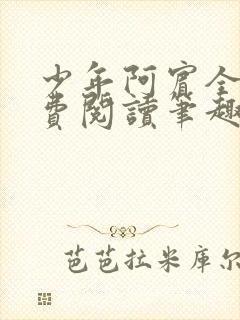 少年阿賓全
費閱讀筆趣
芭芭拉米库尔